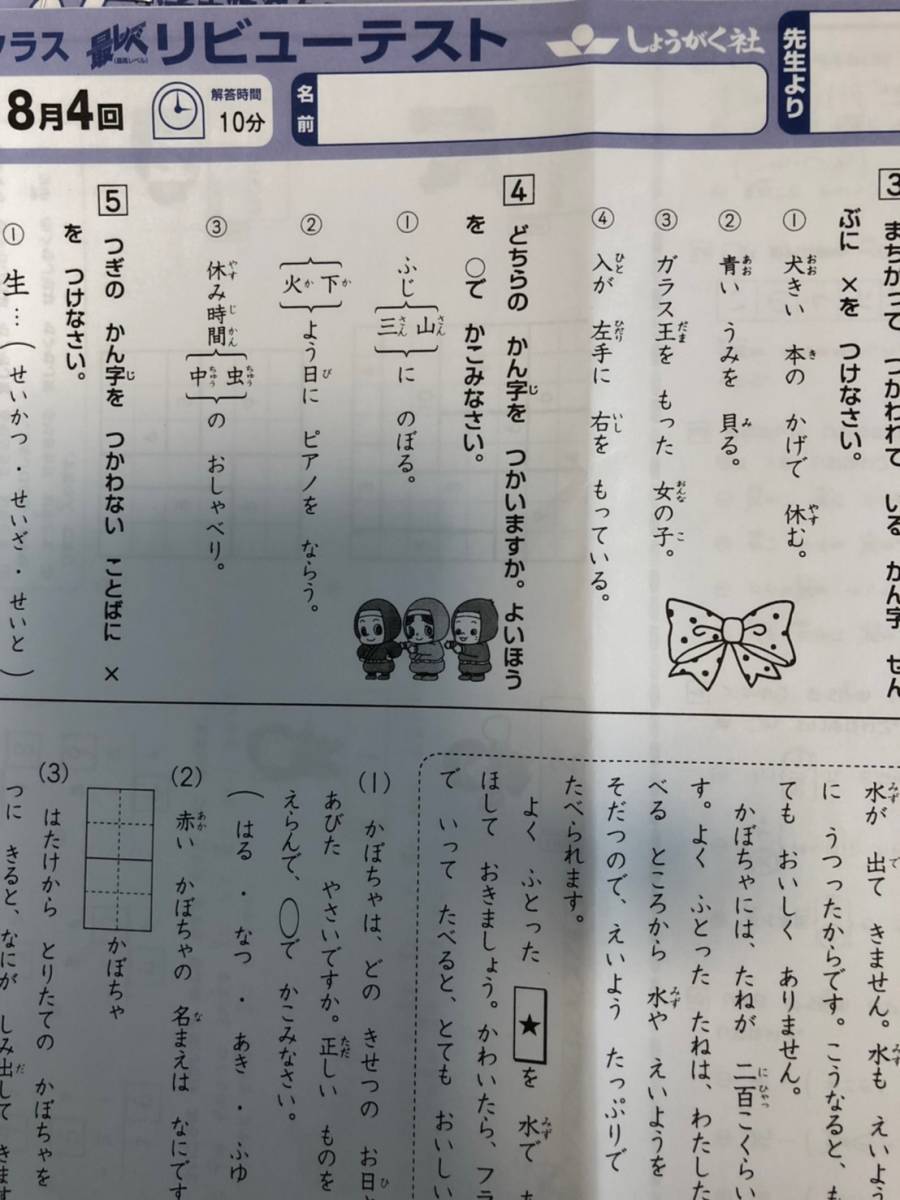 クラス 最レベ(最高レベル) リビューテスト
しょうがく社
先生より
8月4回
解答時間
10分
名前
3 まちがって つかわれて いる かん字 せん
ぶに ×を つけなさい。
① 犬きい 本の かげで 休む。
② 青い うみを 貝る。
③ ガラス王を もった 女の子。
④ 入が 左手に 右を もっている。
4 どちらの かん字を つかいますか。よいほう
を ○で かこみなさい。
① ふじ{山 三}に のぼる。
② {下 火}よう日に ピアノを ならう。
③ 休み時間{虫 中}の おしゃべり。
5 つぎの かん字を つかわない ことばに ×
を つけなさい。
① 生…(せいかつ・せいざ・せいと)
水が 出て きません。水も えいよ
に うつったからです。こうなると、も
ても おいしく ありません。
かぼちゃには、たねが 二百こくらい
す。よく ふとった たねは、わたした
べる ところから 水や えいようを
そだつので、えいよう たっぷりで
たべられます。
よく ふとった ★を 水で
ほして おきましょう。かわいたら、フラ
で いって たべると、とても おいしい
(1) かぼちゃは、どの きせつの お日
あびた やさいですか。正しい ものを
えらんで、○で かこみなさい。
(はる・なつ・あき・ふゆ
(2) 赤い かぼちゃの 名まえは なにです
かぼちゃ
(3) はたけから とりたての かぼちゃを
つに きると、なにが しみ出して きます